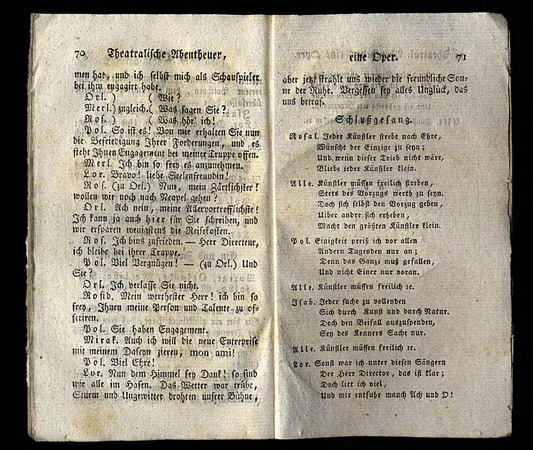 70 Theatralische Abentheuer,
men hat, und ich selbst mich als Schauspieler
bei ihm engagirt habe.
Orl. ) ( Wie?
Merl.) zugleich.( Was sagen Sie?
Ros. ) ( Was hör' ich!
Pol. So ist es! Von mir erhalten Sie nun
die Befriedigung Ihrer Forderungen, und es
steht Ihnen Engagement bei meiner Truppe offen.
Merl. Ich bin so frei es anzunehmen.
Lor. Bravo! liebe Seelenfreundin!
Ros. (zu Orl.) Nun, mein Zärtlichster!
wollen wir noch nach Neapel gehen?
Orl. Ach nein, meine Allervortrefflichste!
Ich kann ja auch hier für Sie schreiben, und
wir ersparen wenigstens die Reisekosten.
Ros. Ich bins zufrieden. — Herr Directeur,
ich bleibe bei ihrer Truppe.
Pol. Viel Vergnügen! — (zu Orl.) Und
Sie?
Orl. Ich verlasse Sie nicht.
Rosid. Mein werthester Herr! ich bin so
frey, Ihnen meine Person und Talente zu of-
feriren.
Pol. Sie haben Engagement.
Mirak. Auch ich will die neue Entreprise
mit meinem Daseyn zieren, mon ami!
Pol. Viel Ehre!
Lor. Nun dem Himmel sey Dank! so sind
wir alle im Hafen. Das Wetter war trübe,
Sturm und Ungewitter drohten unsrer Bühne,
eine Oper. 71
aber jetzt strahlt uns wieder die freundliche Son-
ne der Ruhe. Vergessen sey alles Unglück, das
uns betraf.
Schlußgesang.
Rosal. Jeder Künstler strebt nach Ehre,
Wünscht der Einzige zu seyn;
Und wenn dieser Trieb nicht wäre,
Bliebe jeder Künstler klein.
Alle. Künstler müssen freilich streben,
Stets des Vorzugs werth zu seyn,
Doch sich selbst den Vorzug geben,
Ueber andre sich erheben,
Macht den größten Künstler klein.
Pol. Einigkeit preiß ich vor allen
Andern Tugenden nur an;
Denn das Ganze muß gefallen,
Und nicht Einer nur voran.
Alle. Künstler müssen freilich ꝛc.
Isab. Jeder suche zu vollenden
Sich durch Kunst und durch Natur.
Doch den Beifall auszuspenden,
Sey des Kenners Sache nur.
Alle. Künstler müssen freilich ꝛc.
Lor. Sonst war ich unter diesen Sängern
Der Herr Director, das ist klar;
Doch litt ich viel,
Und mir entfuhr manch Ach und O!